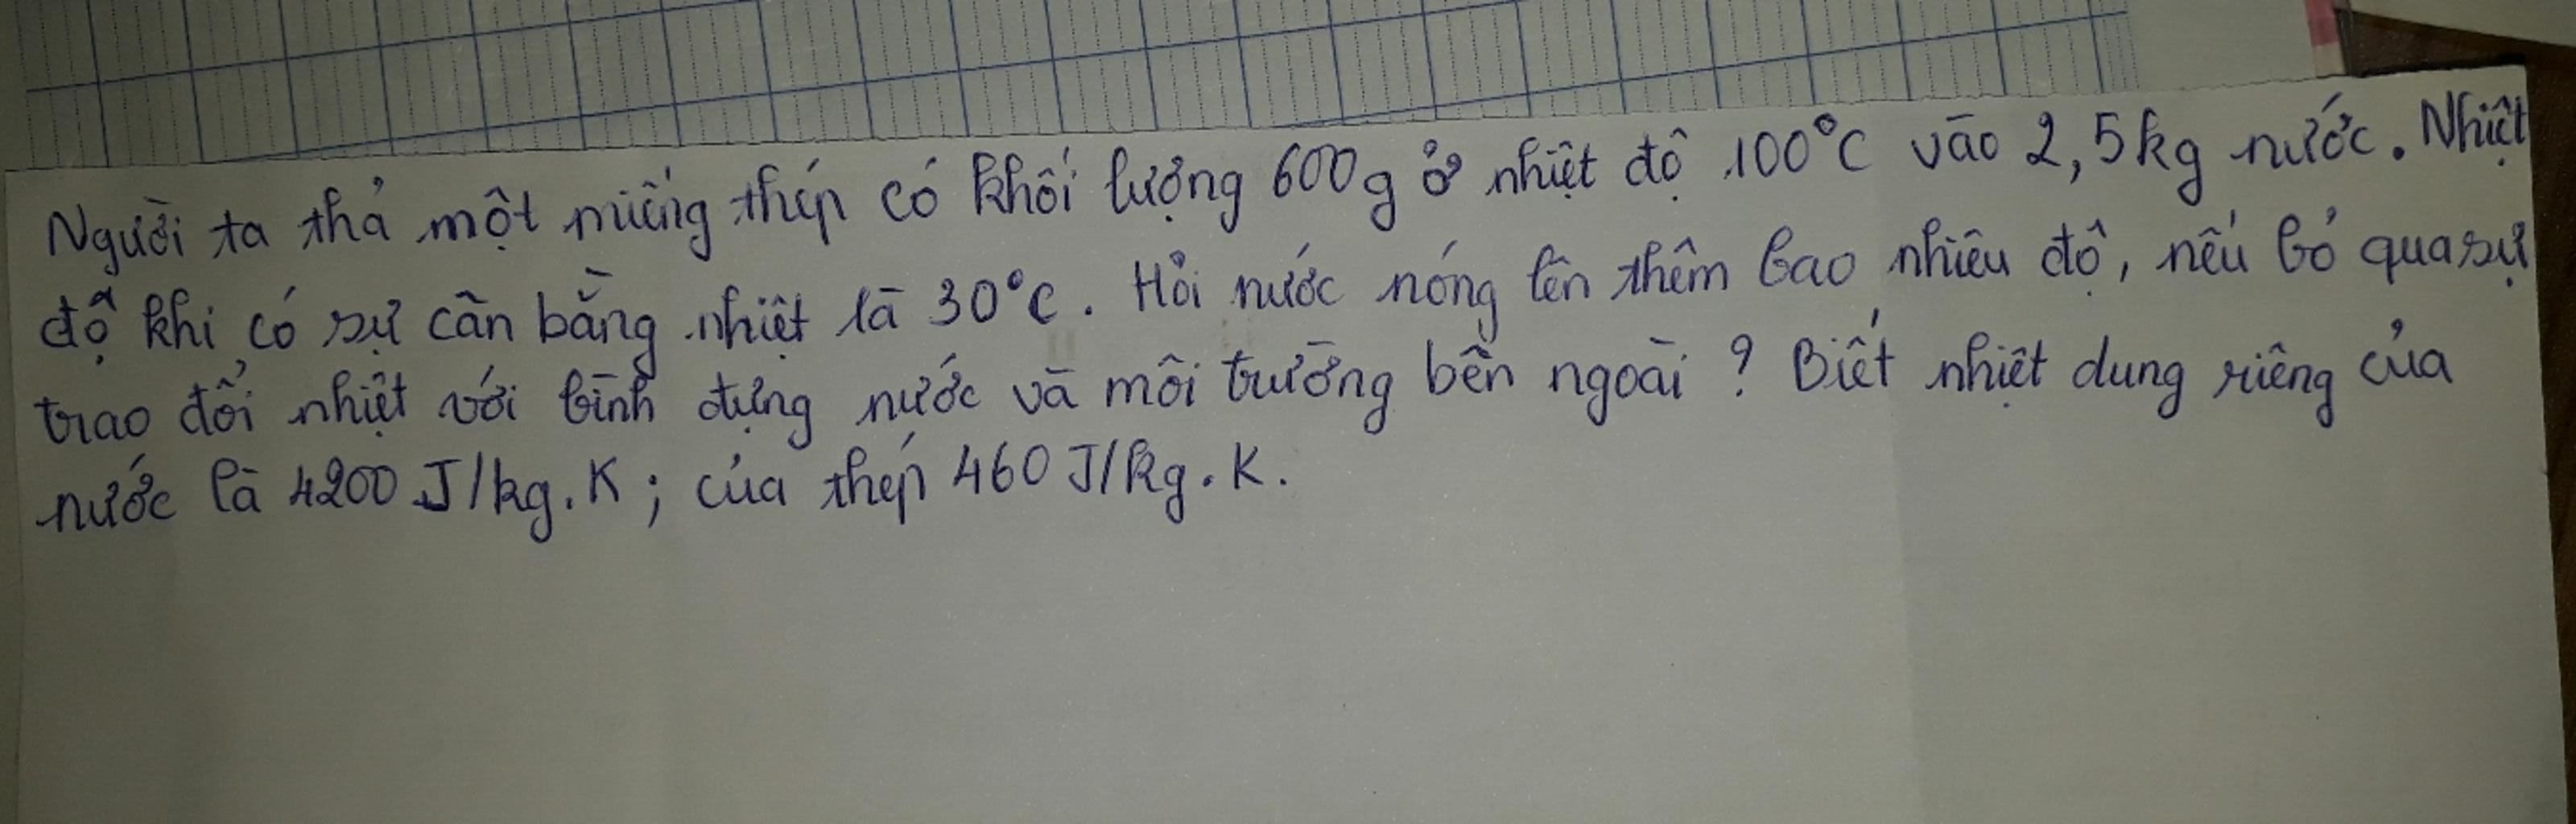 Người ta thả một miếng thép có khối lượng 600g ở nhiệt độ 100°C vào 2,5kg nước. Nhiệt
độ khi có sự cân bằng nhiệt là 30°C. Hỏi nước nóng lên thêm bao nhiêu độ, nếu bỏ qua sự
trao đổi nhiệt với bình đựng nước và môi trường bên ngoài ? Biết nhiệt dung riêng của
nước là 4200 J/kg.K; của thép 460 J/kg.K.